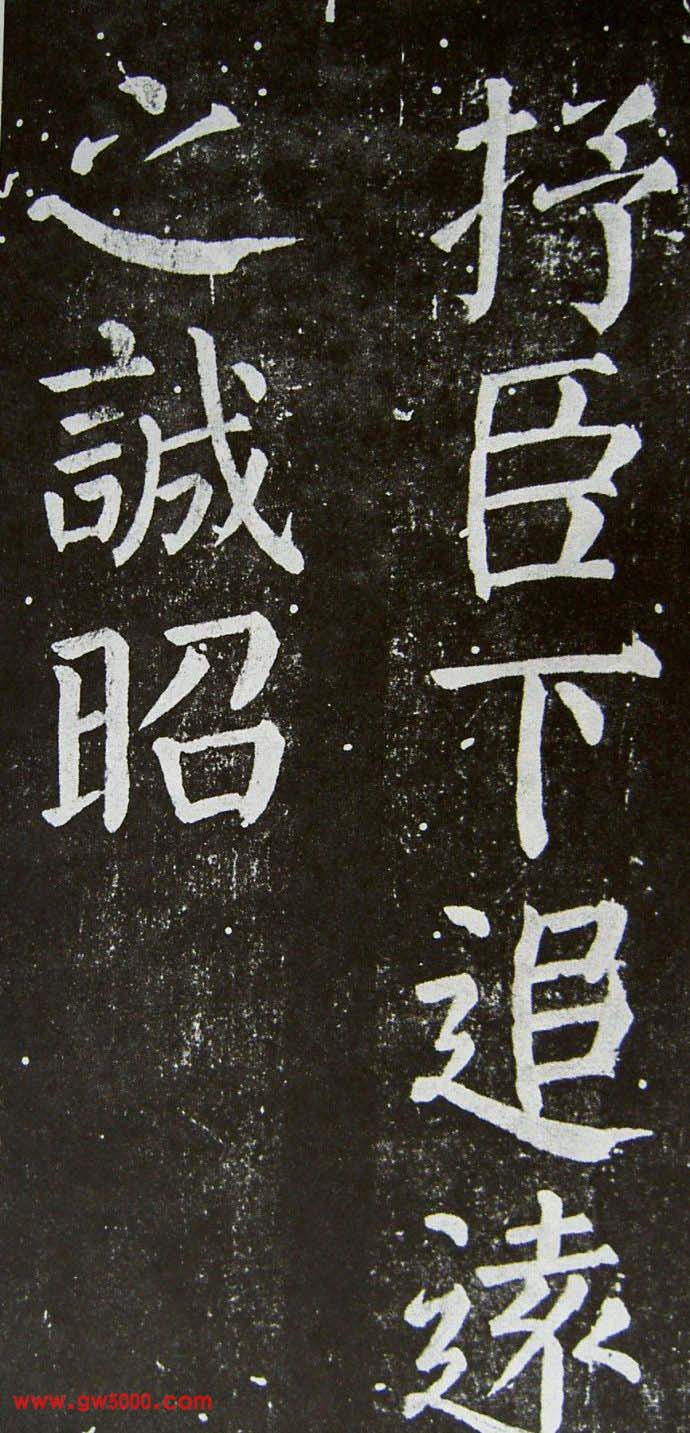 抒臣下追遠
之誠昭
www.gw5000.com